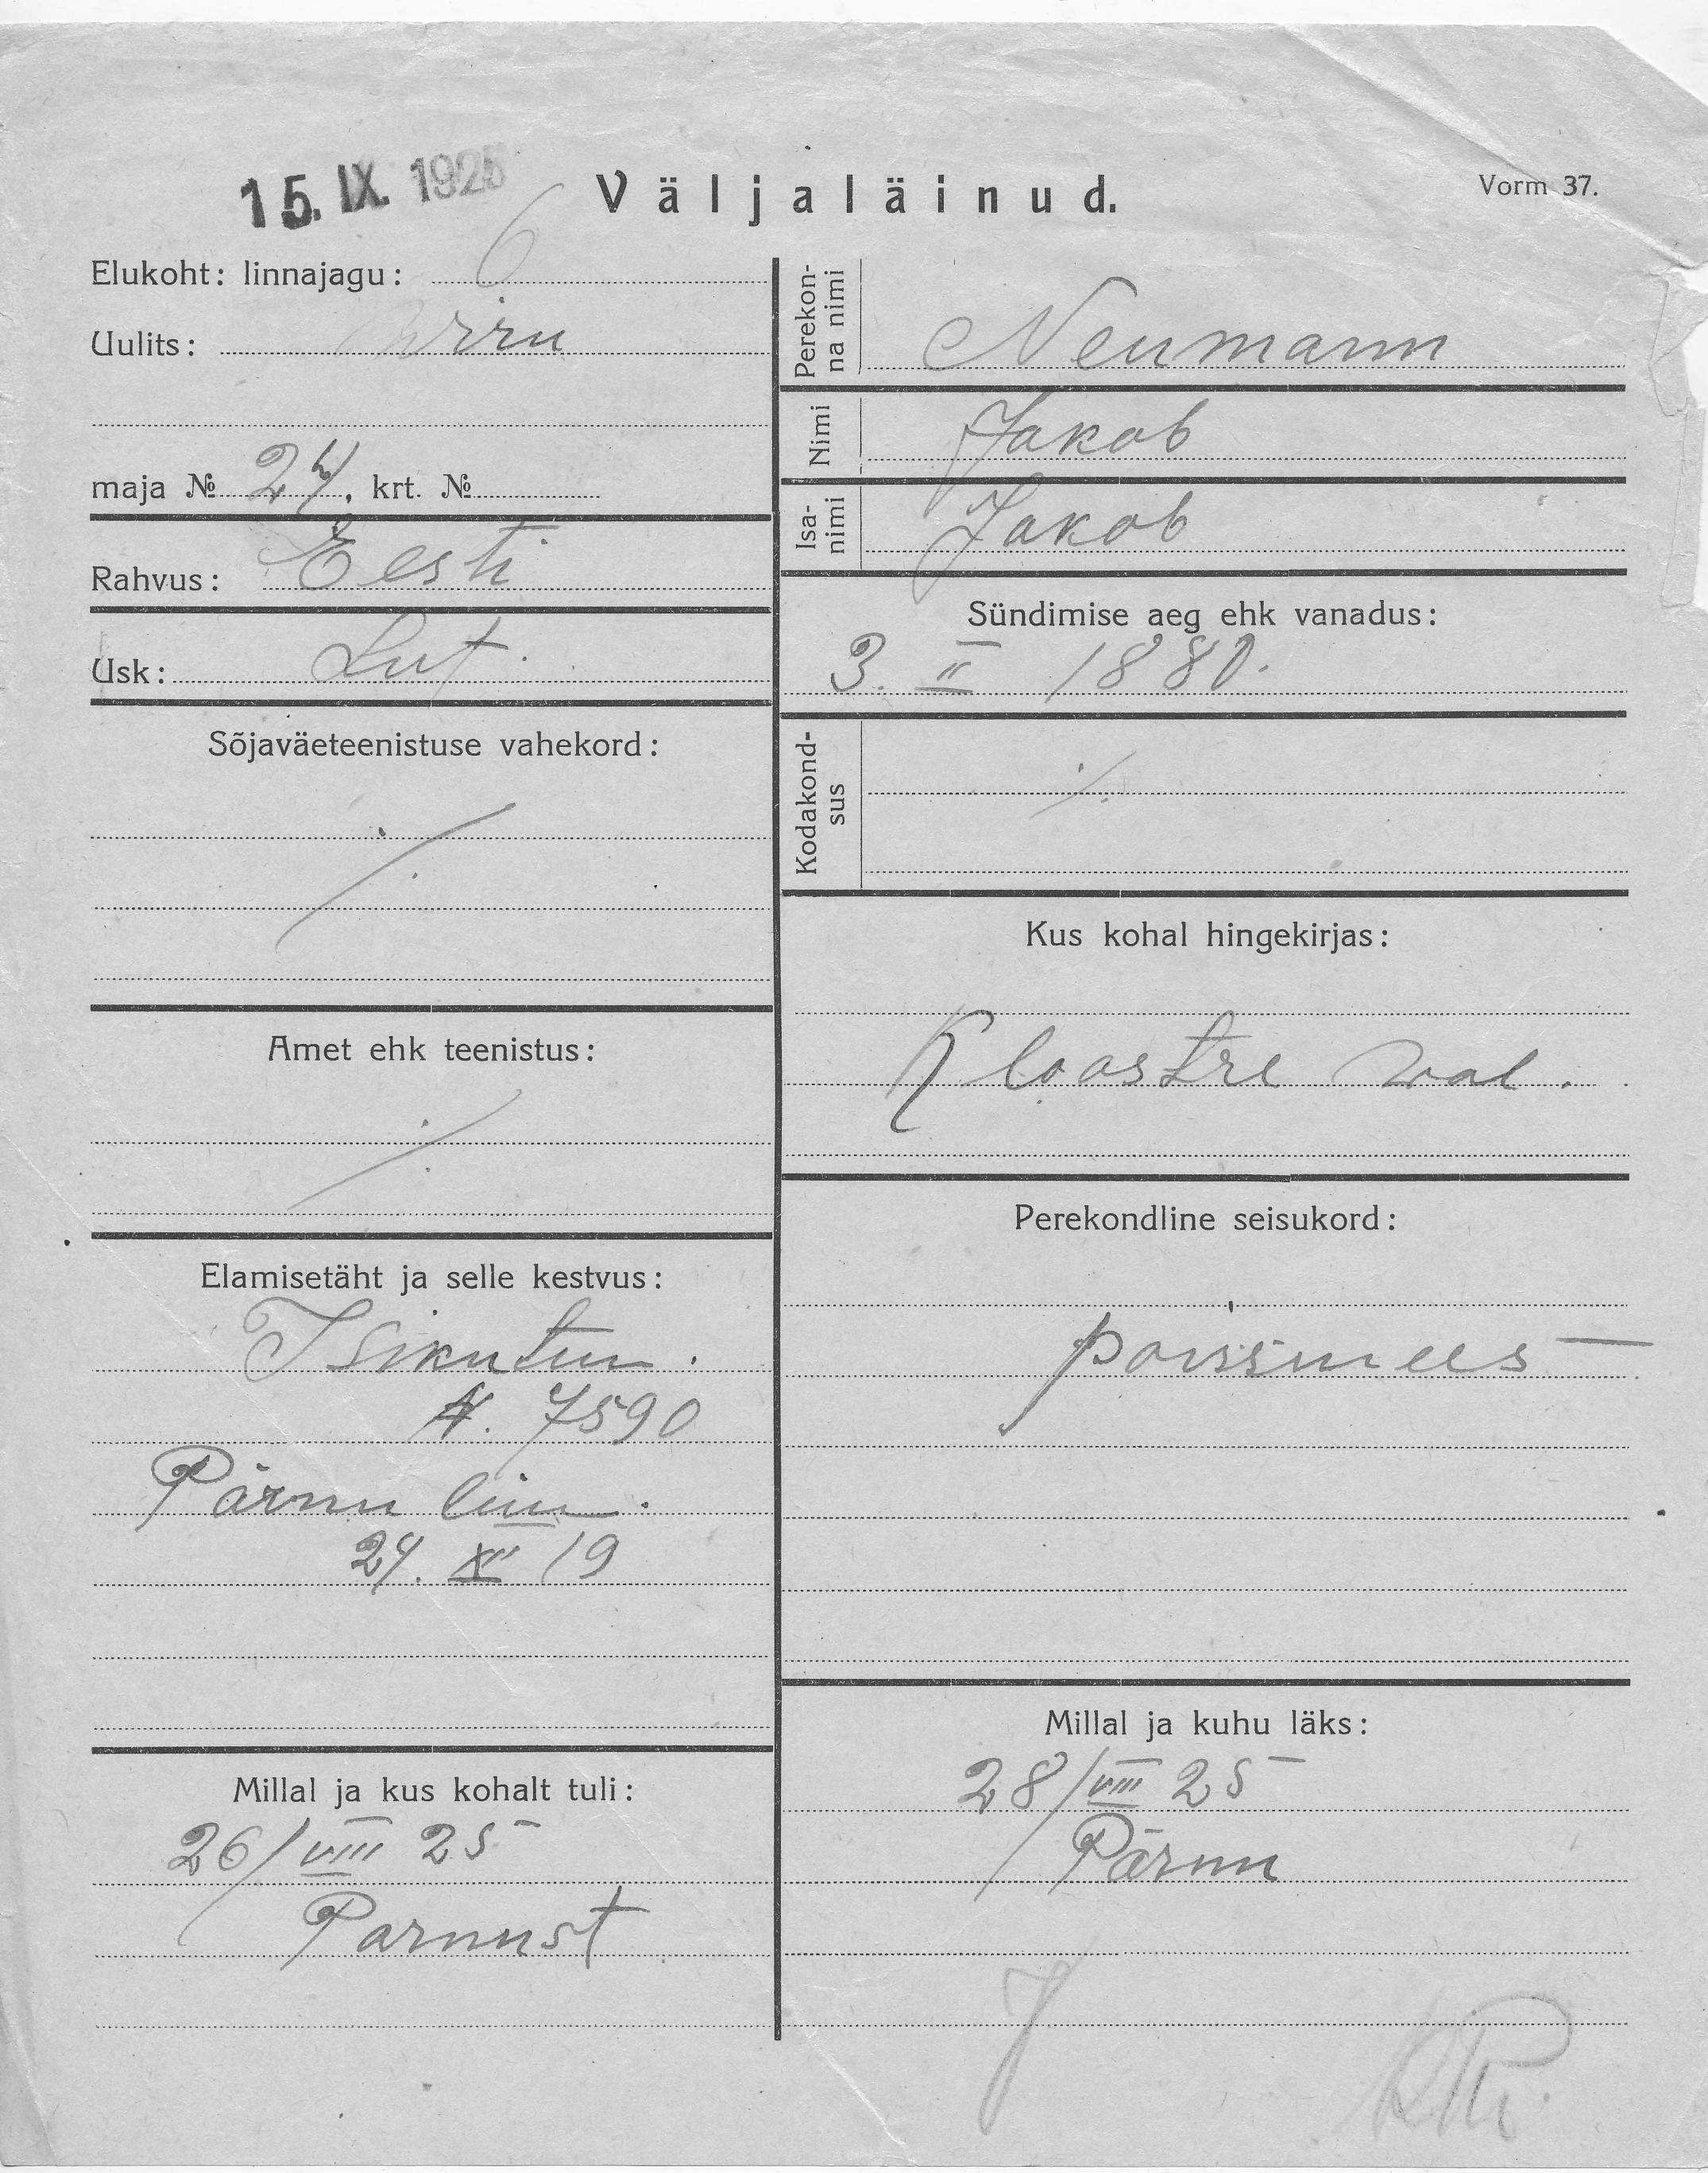 15. IX. 1925
Väljaläinud.
Vorm 37.
Elukoht: linnajagu: 6
Uulits: Wiru
maja № 24, krt. №
Rahvus: Eesti
Usk: Lut.
Sõjaväeteenistuse vahekord:
./.
Amet ehk teenistus:
./.
Elamisetäht ja selle kestvus:
Isikutun.
N. 7590
Pärnu linn.
24. XII 19
Millal ja kus kohalt tuli:
26/VIII 25
Parnust
Perekon-
na nimi
Neumann
Nimi
Jakob
Isa-
nimi
Jakob
Sündimise aeg ehk vanadus:
3. II 1880.
Kodakond-
sus
./.
Kus kohal hingekirjas:
Kloostre wal.
Perekondline seisukord:
poissmees
Millal ja kuhu läks:
28/VIII 25
Pärnu